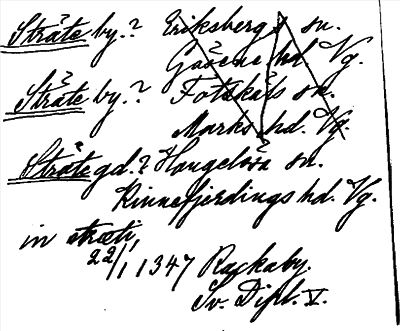 Stråte by.? Eriksbergs sn.
Gäsene hd. Vg.
Stråte by.? Fotskäls sn.
Marks hd. Vg.
Stråte gd.? Hangelösa sn.
Kinnefjerdings hd. Vg.
in stræti,
22/1 1347 Rackaby.
Sv. Dipl. V.